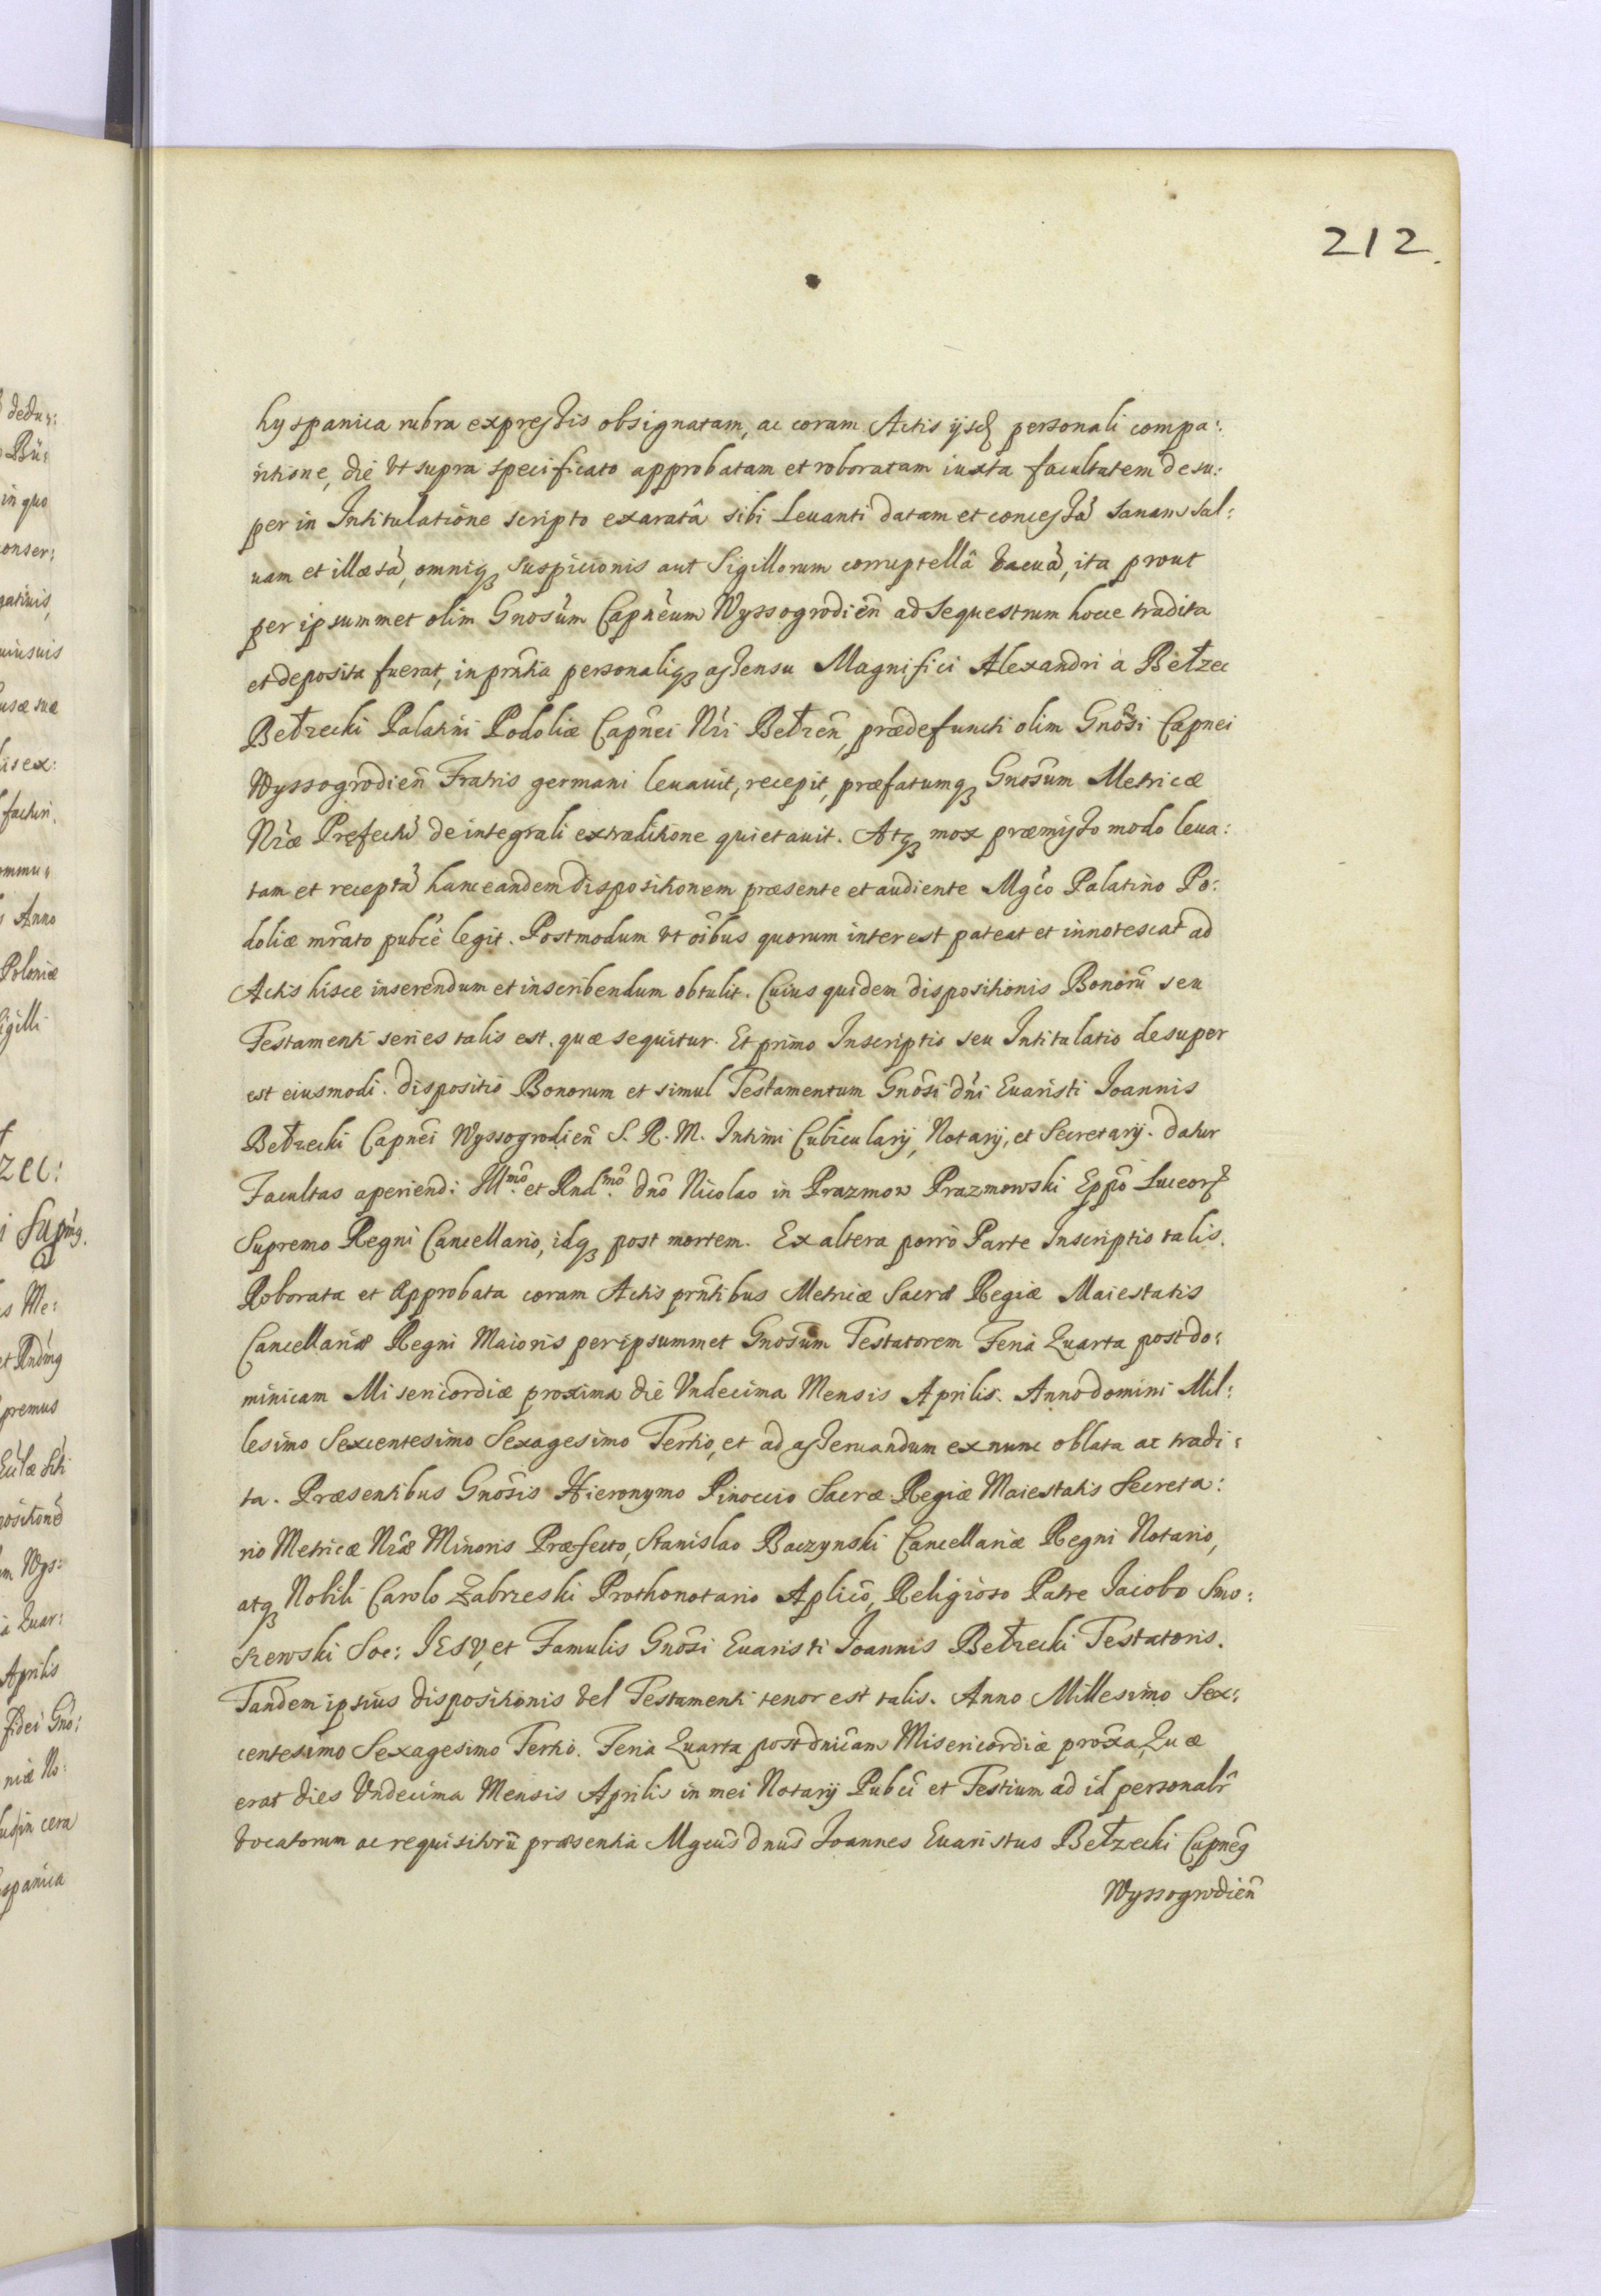 212.
hyspanica rubra expressis obsignatam, ac coram Actis ijsd personali compa:
ritione, die vt supra specificato approbatam et roboratam iuxta facultatem desu:
per in Intitulatione scripto exaratâ sibi Levanti datam et concessã sanam sal:
uam et illæsã, omniq3 suspicionis aut Sigillorum corruptellâ vacuã, ita prout
per ipsummet olim Gnosũm Capnẽum Wyssogrodień ad sequestrum hocce tradita
et deposita fuerat, in prñtia personaliq3 assensu Magnifici Alexandri à Bełzec
Bełzecki Palatini Podoliæ Capñei Nři Bełzeñ, prædefuncti olim Gnõsi Capnei
Wyssogrodieñ Fratris germani leuauit, recepit, præfatumq3 Gnosũm Metricæ
Nřæ Pręfectũ de integrali extraditione quietauit. Atq3 mox præmisso modo leua:
tam et receptã hanc eandem dispositionem præsente et audiente Mgčo Palatino Po:
doliæ mřato pubcè legit. Postmodum vt oĩbus quorum interest pateat et innotescat ad
Actis hisce inserendum et inscribendum obtulit. Cuius quidem dispositionis Bonorũ seu
Testamenti series talis est. quæ sequitur. Et primo Inscriptio seu Intitulatio desuper
est eiusmodi. Dispositio Bonorum et simul Testamentum Gnõsi Dñi Euaristi Joannis
Bełzecki Capñei Wyssogrodień S. R. M. Intimi Cubicularij, Notarij, et Secretarij. Datur
Facultas aperiendi Illmo. et Rndmo. Dnõ Nicolao in Prazmow Prazmowski Eppõ Luceor̃
Supremo Regni Cancellario, idq3 post mortem. Ex altera porrò Parte Inscriptio talis.
Roborata et Approbata coram Actis prñtibus Metricæ Sacræ Regiæ Maiestatis
Cancellariæ Regni Maioris per ipsummet Gnosũm Testatorem Feria Quarta post do:
minicam Misericordiæ proxima die Vndecima Mensis Aprilis. Anno Domini Mil:
lesimo Sexcentesimo Sexagesimo Tertio, et ad asseruandum ex nunc oblata ac tradi:
ta. Præsentibus Gnõsis Hieronymo Pinoccio Sacræ Regiæ Maiestatis Secreta:
rio Metricæ Nřæ Minoris Præfecto, Stanislao Baczynski Cancellariæ Regni Notario,
atq3 Nobili Carolo Zabrzeski Prothonotario Aplicõ, Religioso Patre Jacobo Smo:
szewski Soc: IESV, et Famulis Gnõsi Euaristi Joannis Bełzecki Testatoris.
Tandem ipsius dispositionis vel Testamenti tenor est talis. Anno Millesimo Sex:
centesimo Sexagesimo Tertio. Feria Quarta post dnicam Misericordiæ proxa, Quæ
erat dies Vndecima Mensis Aprilis in mei Notarij Pubci et Testium ad id personalř
vocatorum ac requisitorũ præsentia Mgcus Dnus Joannes Euaristus Bełzecki Capneg
Wyssogrodień